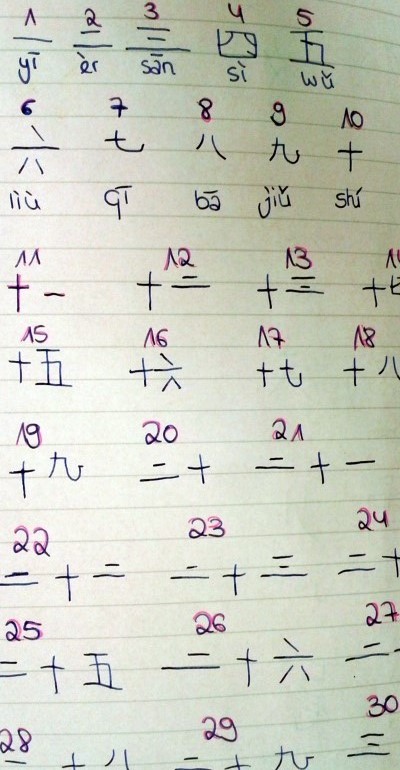 1 2 3 4 5
一 二 三 四 五
yī èr sān sì wǔ
6 7 8 9 10
六 七 八 九 十
liù qī bā jiǔ shí
11 12 13
十一 十二 十三 十
15 16 17 18
十五 十六 十七 十八
19 20 21
十九 二十 二十一
22 23 24
二十二 二十三 二十
25 26 27
二十五 二十六 二
28 29 30
十八 二十九 三